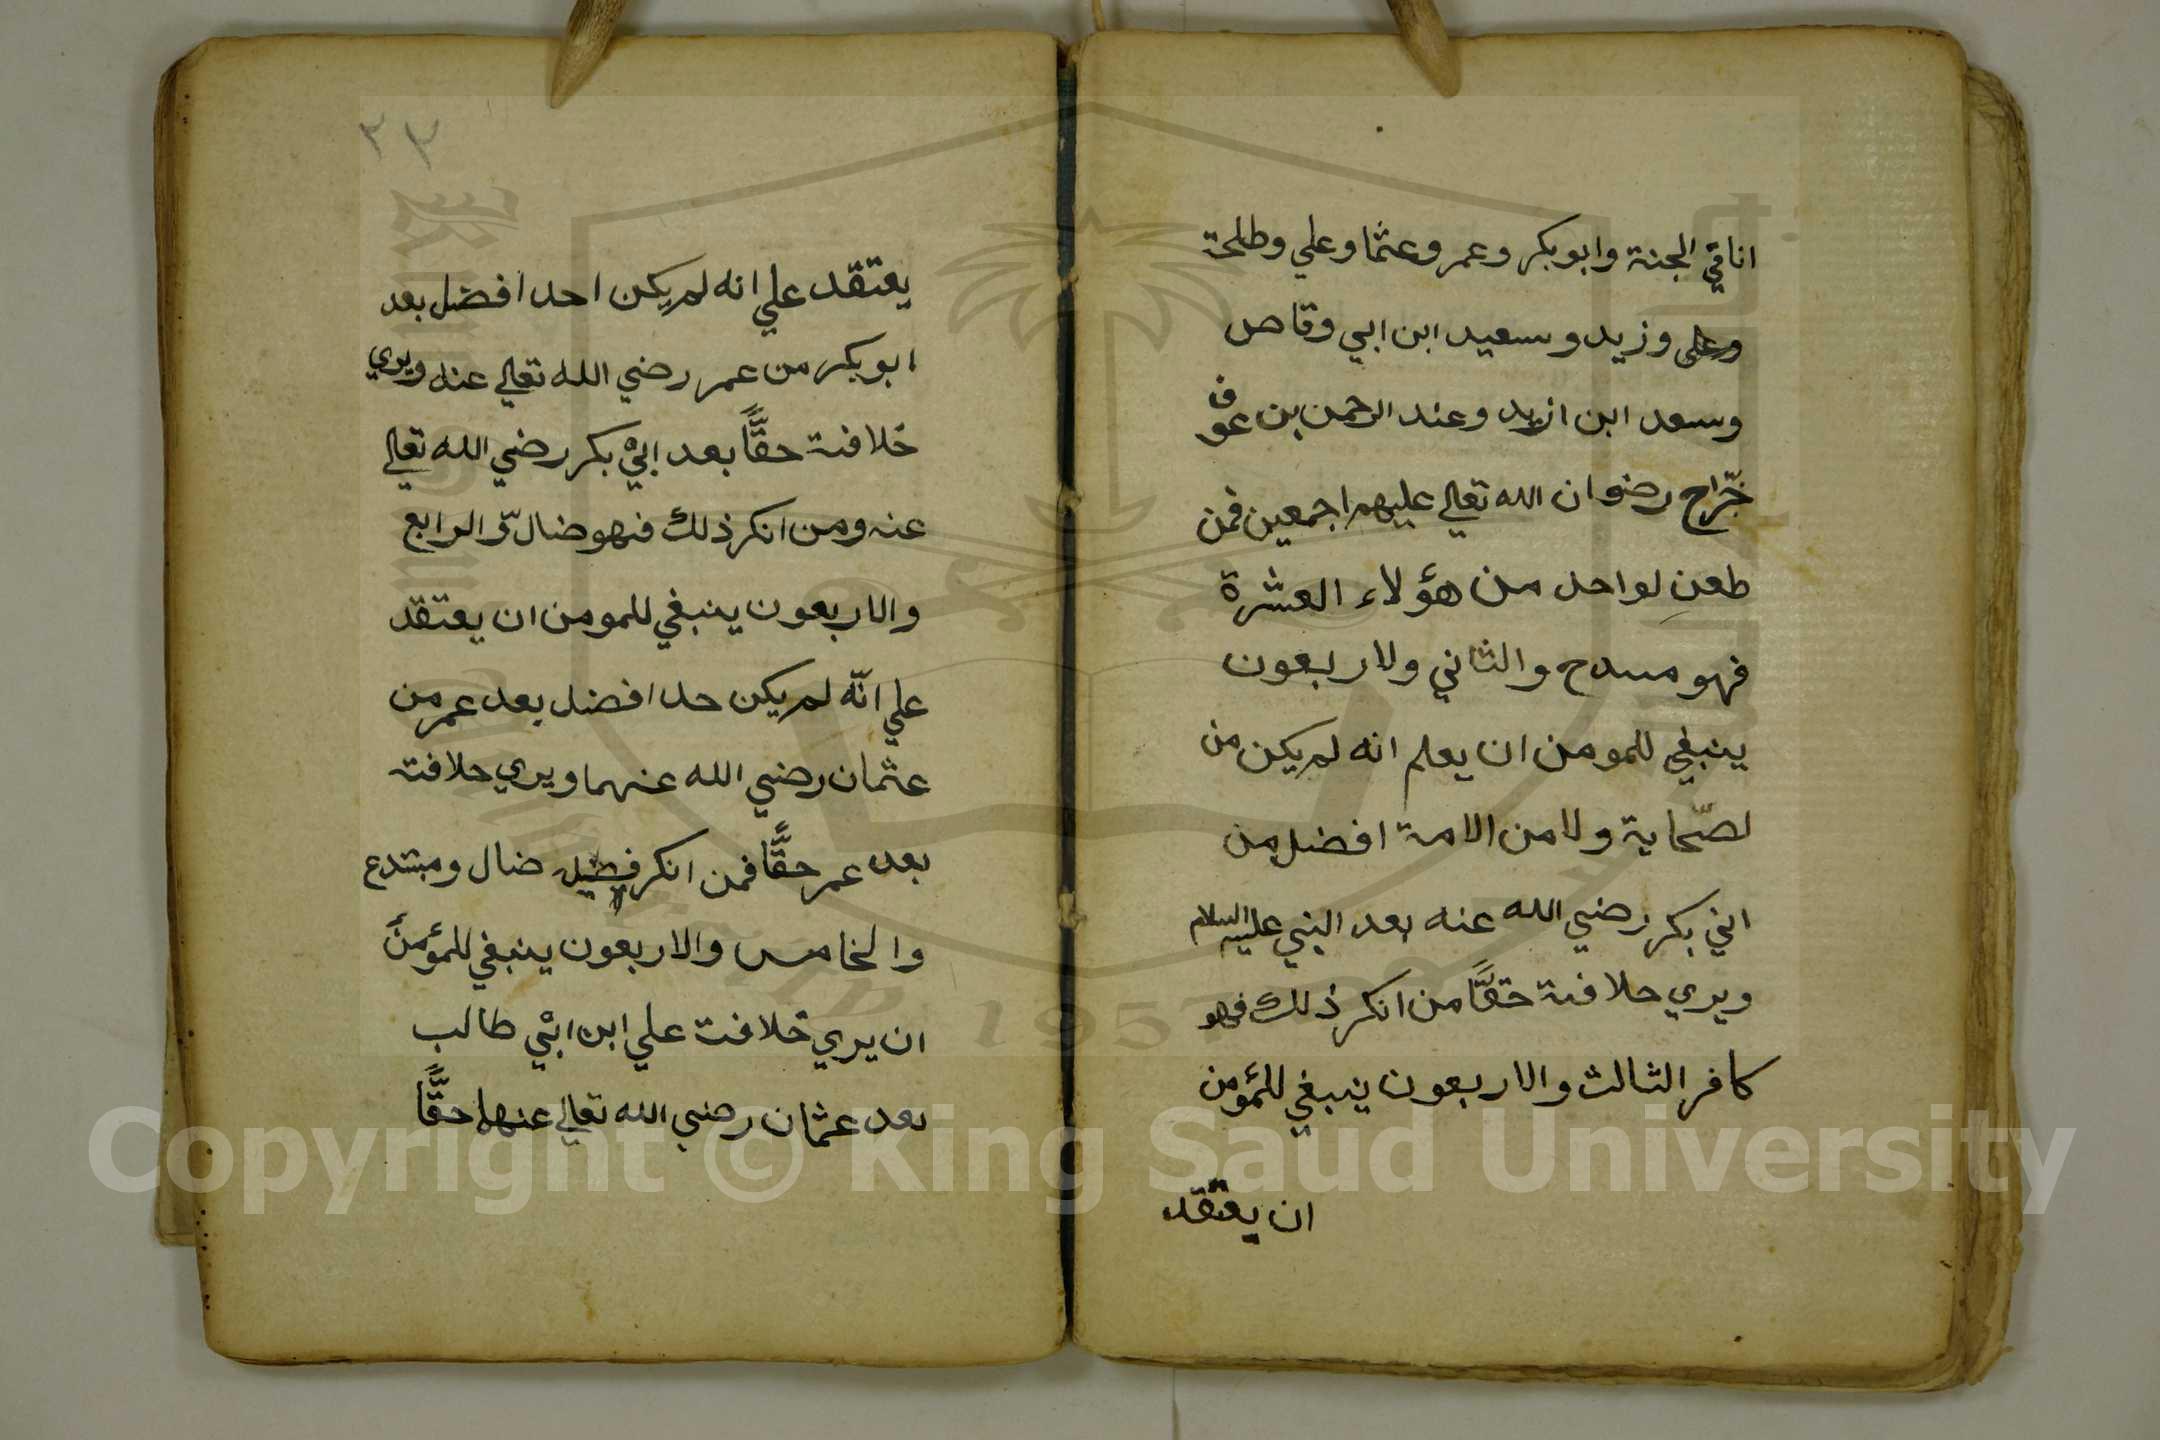 انا في الجنة وابوبكر وعمر وعثما وعلي وطلحة
وعلى وزيد وسعيد ابن ابي وقاص
وسعد ابن ازيد وعند الرحمن بن عوف
جّراح رضوان الله تعالي عليهم اجمعين فمن
طعن لواحد من هؤلاء العشرة
فهو مبدح والثاني ولاربعون
ينبغي للمومن ان يعلم انه لم يكن من
لصّحابة ولا من الامة افضل من
ابي بكر رضي الله عنه بعد النبي عليه السلام
ويري حلافة حقًّا من انكر ذلك فهو
كافر الثالث والاربعون ينبغي للمؤمن
ان يعتقد
٢٢
يعتقد علي انه لم يكن احد افضل بعد
ابو بكر من عمر رضي الله تعالي عنه ويري
خلافة حقًّا بعد ابي بكر رضي الله تعالي
عنه ومن انكر ذلك فهو ضالّ والرابع
والاربعون ينبغي للمومن ان يعتقد
علي انّه لم يكن حد افضل بعد عمر من
عثمان رضي الله عنهما ويري حلافته
بعد عمر حقًّا فمن انكر ضال ومبتدع
والخامس والاربعون ينبغي للمؤمن
ان يري خلافت علي ابن ابي طالب
بعد عثمان رضي الله تعالي عنهما حقًّا
Copyright © King Saud University
King Saud University 1957